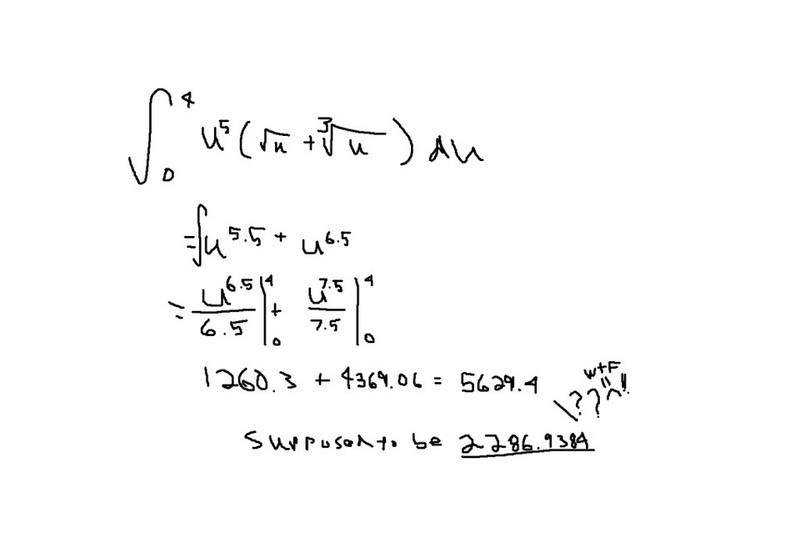 ∫₀⁴ u⁵ (√u + ∛u) du
= ∫ u^5.5 + u^6.5
= u^6.5/6.5 |₀⁴ + u^7.5/7.5 |₀⁴
1260.3 + 4369.06 = 5629.4
wtf
\??
!!
Supposed to be 2286.9384